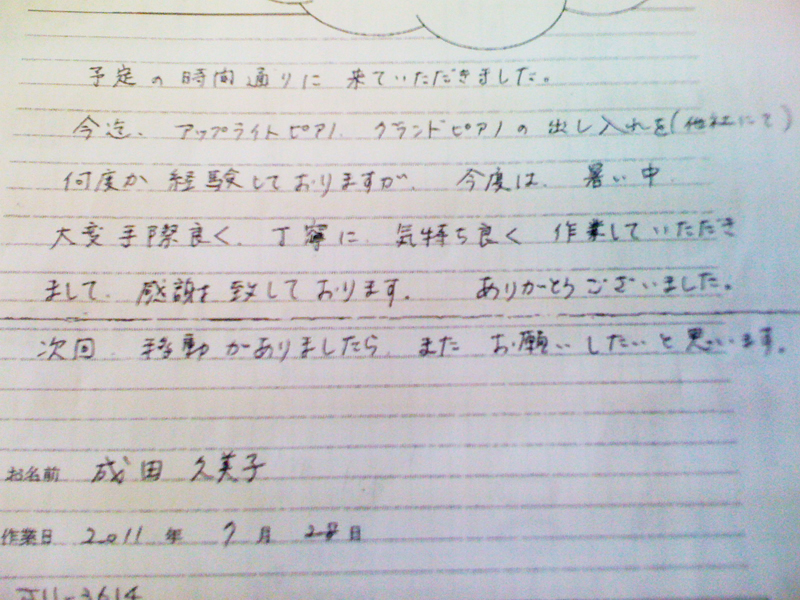 予定の時間通りに 来ていただきました。
今迄、アップライトピアノ、グランドピアノの出し入れを(他社にて)
何度か経験しておりますが、今度は、暑い中、
大変手際良く、丁寧に、気持ち良く作業していただき
まして、感謝を致しております。 ありがとうございました。
次回、移動がありましたら、また お願いしたいと思います。
お名前 成田 久美子
作業日 2011 年 7 月 28 日
-3614